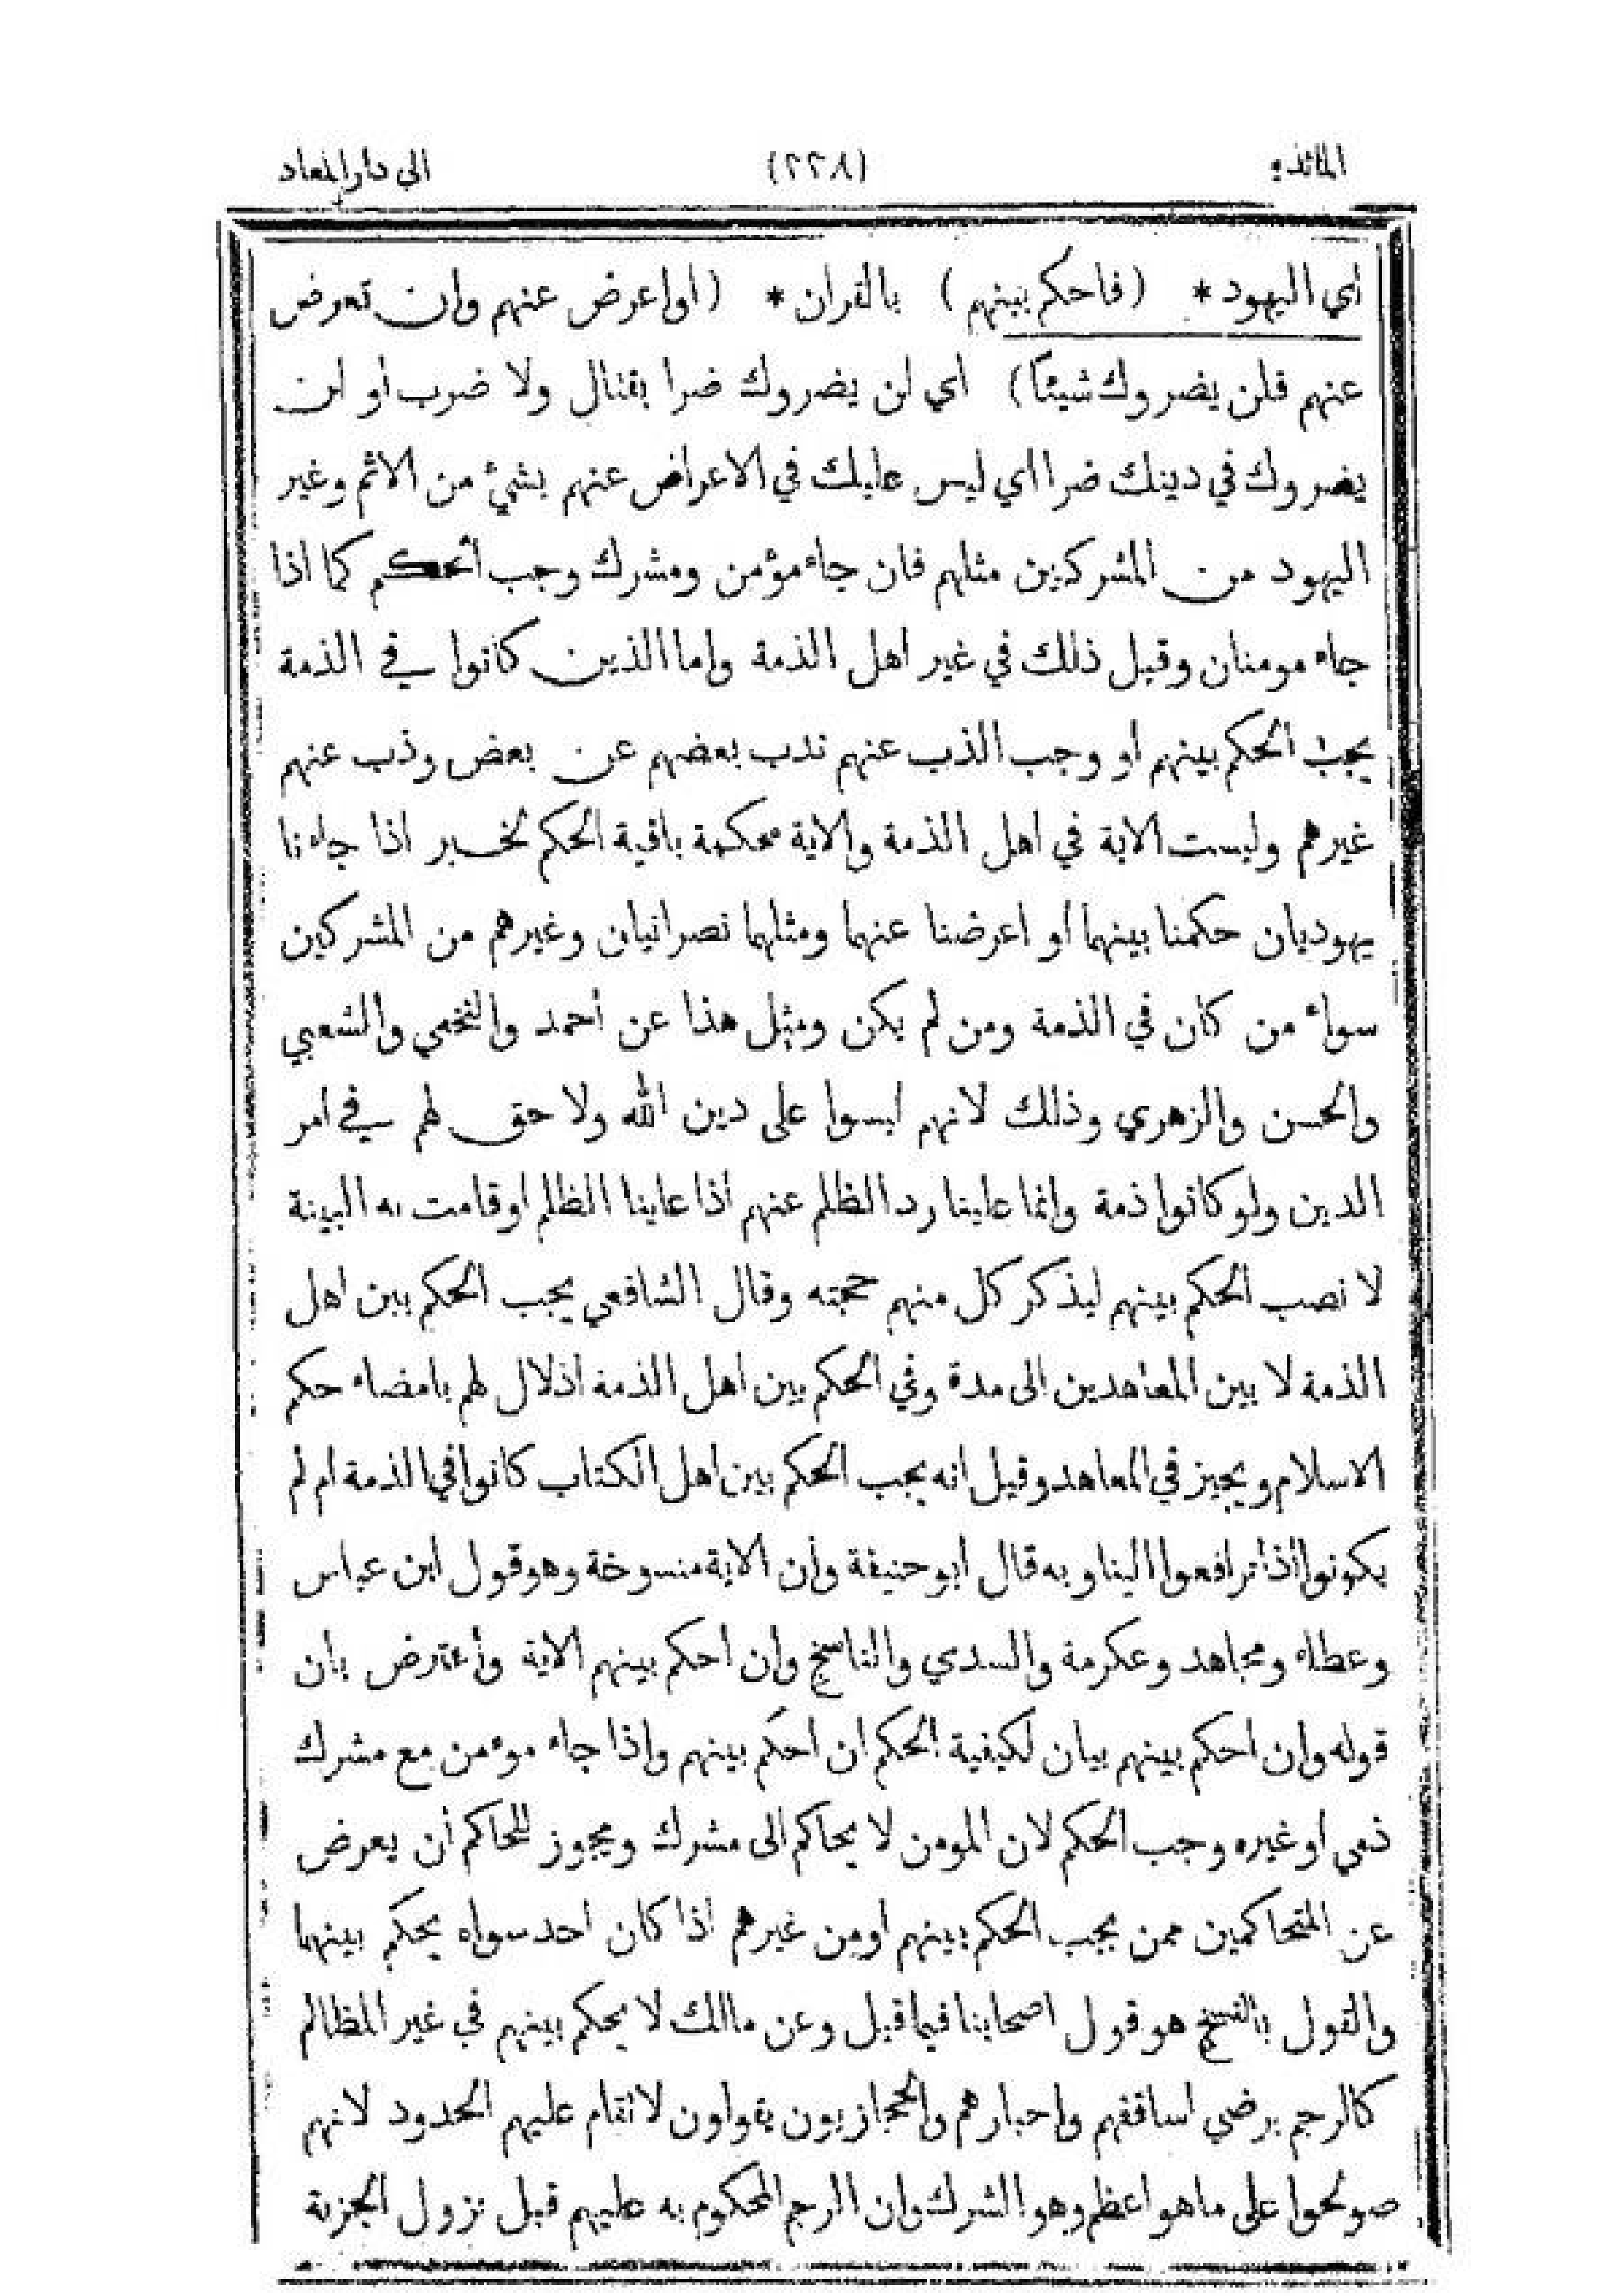 المائدة
(٢٢٨)
الى دار المعاد
اي اليهود * (فاحكم بينهم) بالقران * (او اعرض عنهم وان تعرض
عنهم فلن يضروك شيئا) اي لن يضروك ضرا بقتال ولا ضرب أو لن
يضروك في دينك ضرا اي ليس عليك في الاعراض عنهم بشيء من الاثم وغير
اليهود من المشركين مثلهم فان جاء مؤمن ومشرك وجب الحكم كما اذا
جاء مومنان وقيل ذلك في غير اهل الذمة واما الذين كانوا في الذمة
يجب الحكم بينهم او وجب الذب عنهم نذب بعضهم عن بعض وذب عنهم
غيرهم وليست الاية في اهل الذمة والاية محكمة باقية الحكم نخير اذا جاءنا
يهوديان حكمنا بينهما او اعرضنا عنهما ومثلهما نصرانيان وغيرهم من المشركين
سواء من كان في الذمة ومن لم يكن ومثل هذا عن أحمد والنخعي والشعبي
والحسن والزهري وذلك لانهم ليسوا على دين الله ولا حق لهم في امر
الدين ولو كانوا ذمة وانما علينا رد الظلم عنهم اذا عاينا الظلم او قامت به البينة
لا نصب الحكم بينهم ليذكر كل منهم حجته وقال الشافعي يجب الحكم بين اهل
الذمة لا بين المعاهدين الى مدة وفي الحكم بين اهل الذمة اذلال لهم بامضاء حكم
الاسلام ويجيز في المعاهد وقيل انه يجب الحكم بين اهل الكتاب كانوا في الذمة ام لم
يكونوا اذا ترافعوا الينا وبه قال ابو حنيفة وأن الاية منسوخة وهو قول ابن عباس
وعطاء ومجاهد وعكرمة والسدي والناسخ وان احكم بينهم الاية وأعترض بان
قوله وان احكم بينهم بيان لكيفية الحكم ان احكم بينهم واذا جاء موءمن مع مشرك
ذمي او غيره وجب الحكم لان المومن لا يحاكم الى مشرك ويجوز للحاكم أن يعرض
عن المتحاكمين ممن يجب الحكم بينهم او من غيرهم اذا كان احد سواه يحكم بينهما
والقول بالنسخ هو قول اصحابنا فيما قيل وعن مالك لا يحكم بينهم في غير المظالم
كالرجم برضي اساقفهم واحبارهم والحجازيون يقولون لا تقام عليهم الحدود لانهم
صولحوا على ما هو اعظم وهو الشرك وان الرجم المحكوم به عليهم قبل نزول الجزية